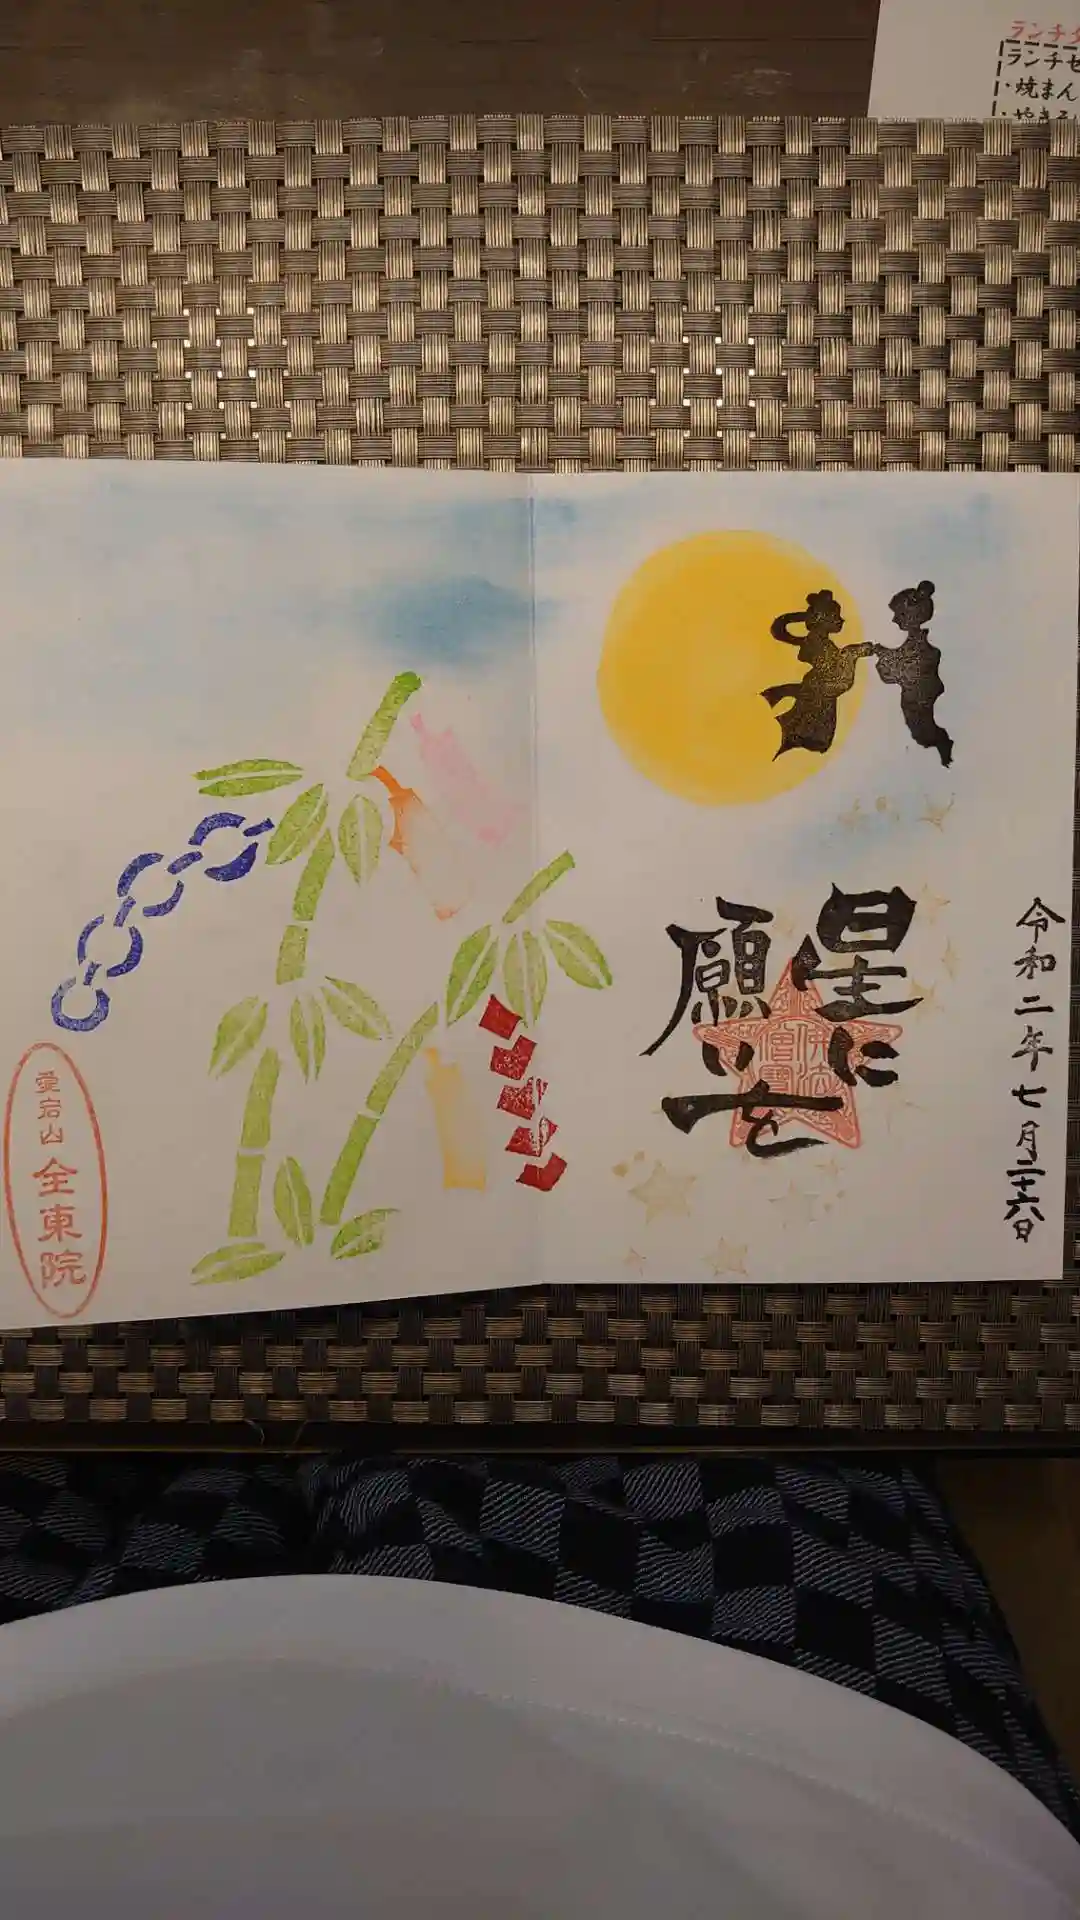 ランチタ
ランチセ
・焼まん
星に
願いを
佛法
僧寶
令和二年七月二十六日
愛宕山
全東院